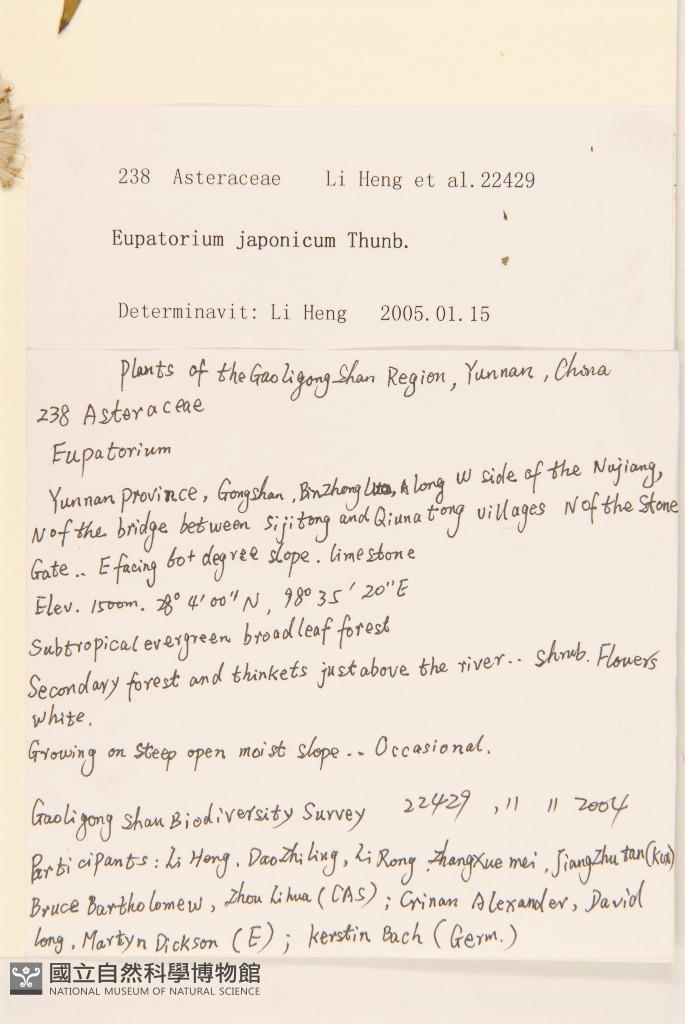 238 Asteraceae Li Heng et al.22429
Eupatorium japonicum Thunb.
Determinavit: Li Heng 2005.01.15
Plants of the Gaoligong Shan Region, Yunnan, China
238 Asteraceae
Eupatorium
Yunnan province, Gongshan, BinZhong Luo, Along W side of the Nujiang,
N of the bridge between Sijitong and Qiunatong villages N of the Stone
Gate.. E facing 60+ degree slope. limestone
Elev. 1500m. 28° 4' 00" N, 98° 35' 20" E
Subtropical evergreen broadleaf forest
Secondary forest and thinkets just above the river.. Shrub. Flowers
white.
Growing on steep open moist slope.. Occasional.
Gaoligong Shan Biodiversity Survey 22429, 11 11 2004
Participants: Li Heng, Dao Zhiling, Li Rong, Zhang Xue mei, Jiang Zhu tan (KUN)
Bruce Bartholomew, Zhou Lihua (CAS); Crinan Alexander, David
long, Martyn Dickson (E); Kerstin Bach (Germ.)
國立自然科學博物館
NATIONAL MUSEUM OF NATURAL SCIENCE